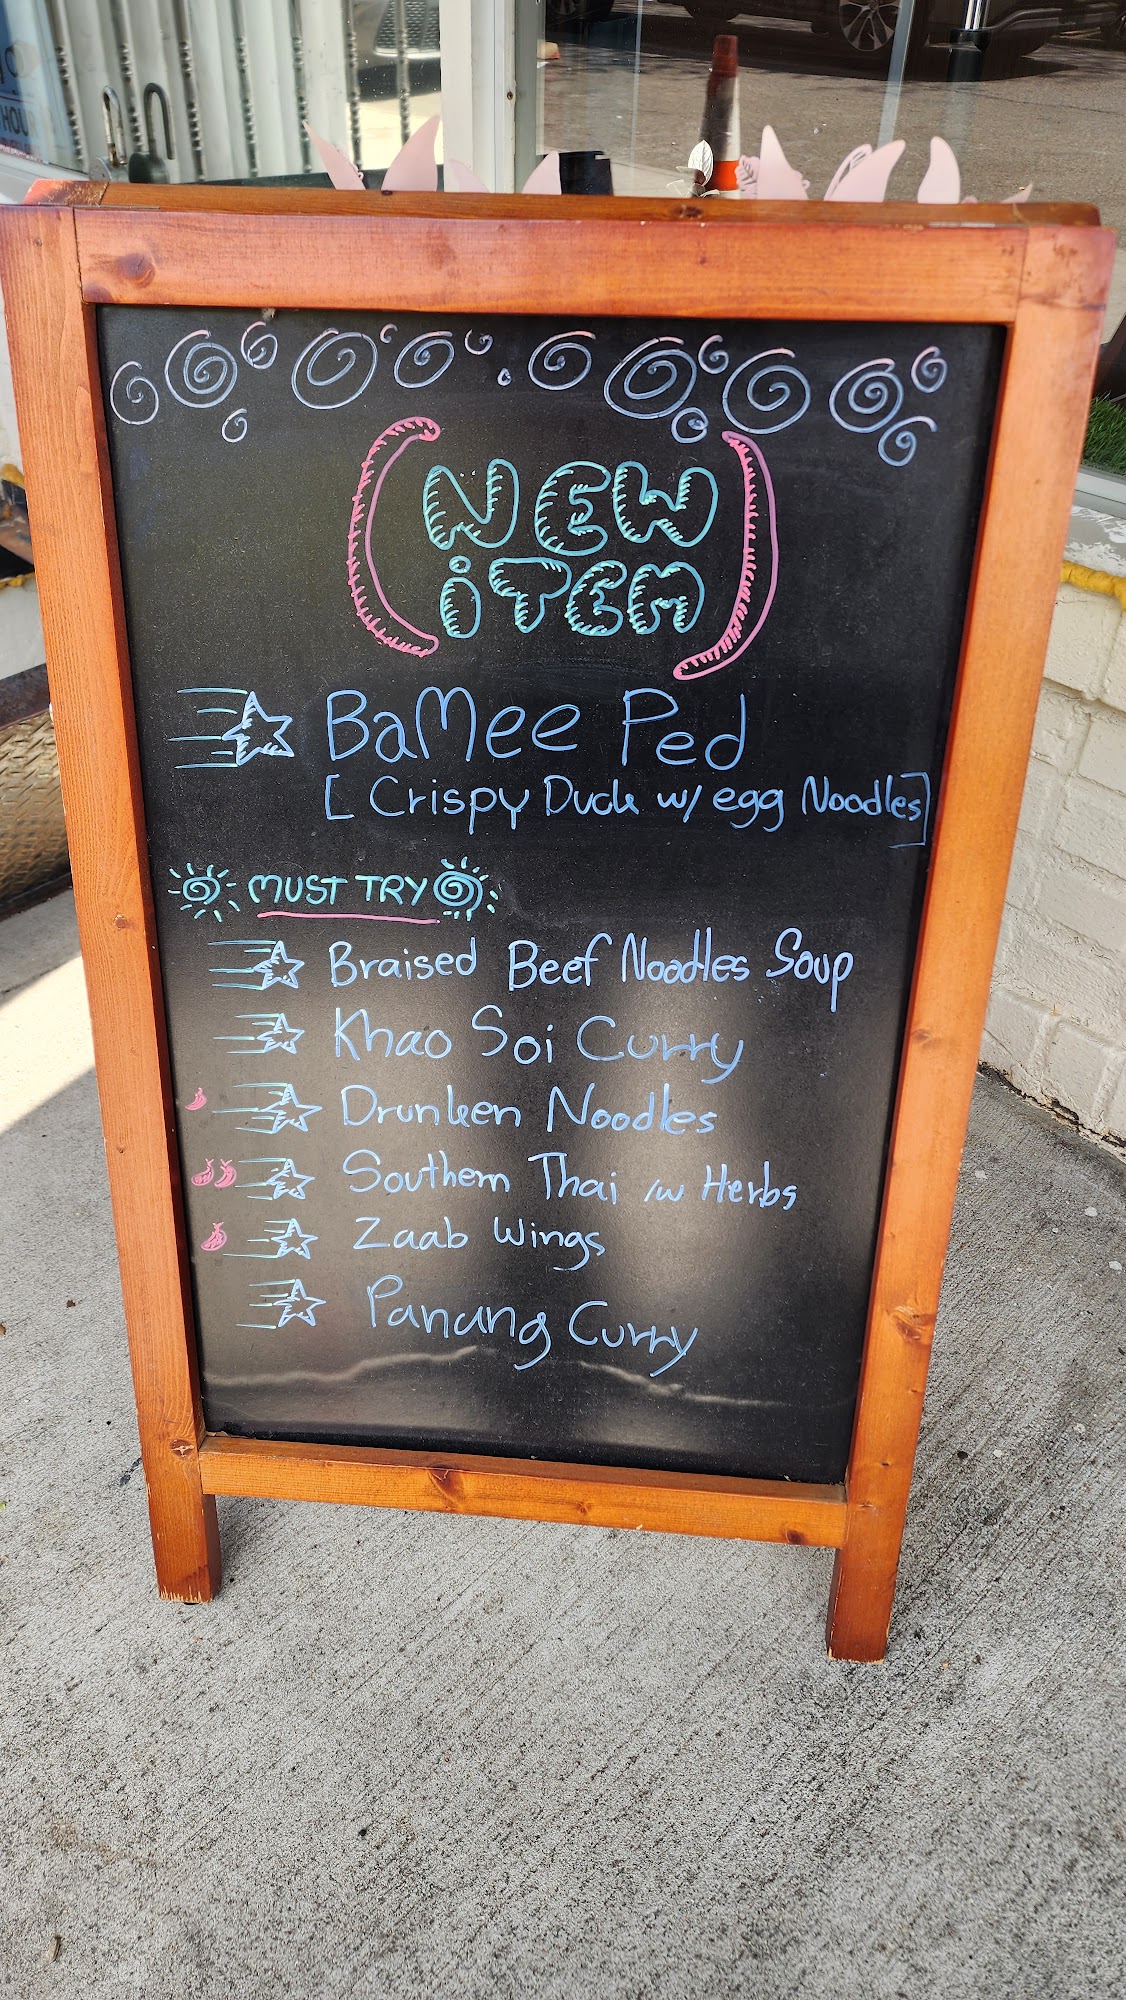 HOUR
NEW
iTEM
BaMee Ped
[ Crispy Duck w/ egg Noodles]
MUST TRY
Braised Beef Noodles Soup
Khao Soi Curry
Drunken Noodles
Southern Thai /w Herbs
Zaab Wings
Panang Curry